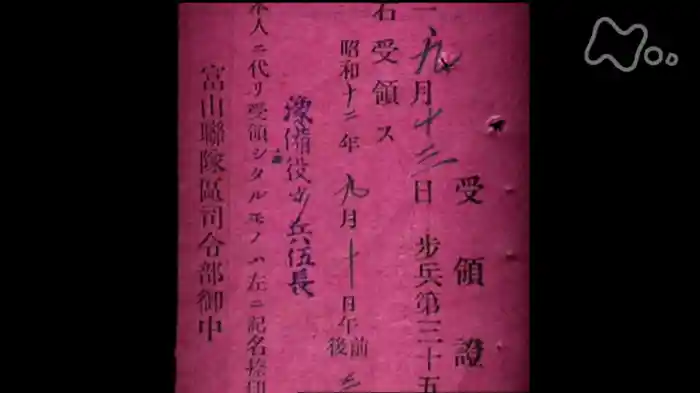 受領證
一九月十三日 步兵第三十五
右受領ス
昭和十二年九月十日午前後
豫備役步兵伍長
本人ニ代リ受領シタルモノハ左ニ記名捺印
富山聯隊區司令部御中